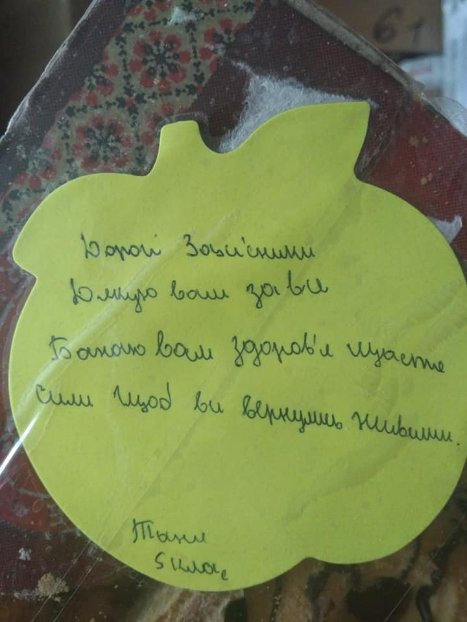 6+
Дорогі Захісники
Дякую вам за все
Бажаю вам здоров'я щастя
сили щоб ви вернулись живими.
Таня
5 клас